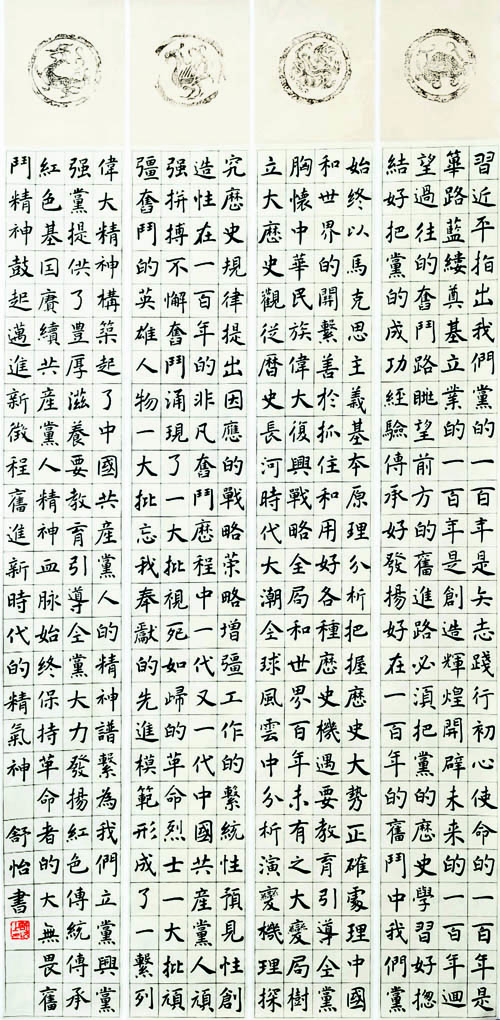 習近平指出我們黨的一百年是矢志踐行初心使命的一百年是
篳路藍縷奠基立業的一百年是創造輝煌開辟未來的一百年迴
望過往的奮鬥路眺望前方的奮進路必須把黨的歷史學習好揔
結好把黨的成功經驗傳承好發揚好在一百年的奮鬥中我們黨
始終以馬克思主義基本原理分析把握歷史大勢正確處理中國
和世界的關繫善於抓住和用好各種歷史機遇要教育引導全黨
胸懷中華民族偉大復興戰略全局和世界百年未有之大變局樹
立大歷史觀從曆史長河時代大潮全球風雲中分析演變機理探
究歷史規律提出因應的戰略策略增彊工作的繫統性預見性創
造性在一百年的非凡奮鬥歷程中一代又一代中國共產黨人頑
强拼搏不懈奮鬥涌現了一大批視死如歸的革命烈士一大批頑
彊奮鬥的英雄人物一大批忘我奉獻的先進模範形成了一繫列
偉大精神構築起了中國共產黨人的精神譜繫為我們立黨興黨
强黨提供了豐厚滋養要教育引導全黨大力發揚紅色傳統傳承
紅色基因賡續共產黨人精神血脈始終保持革命者的大無畏奮
鬥精神鼓起邁進新徵程奮進新時代的精氣神 舒怡書